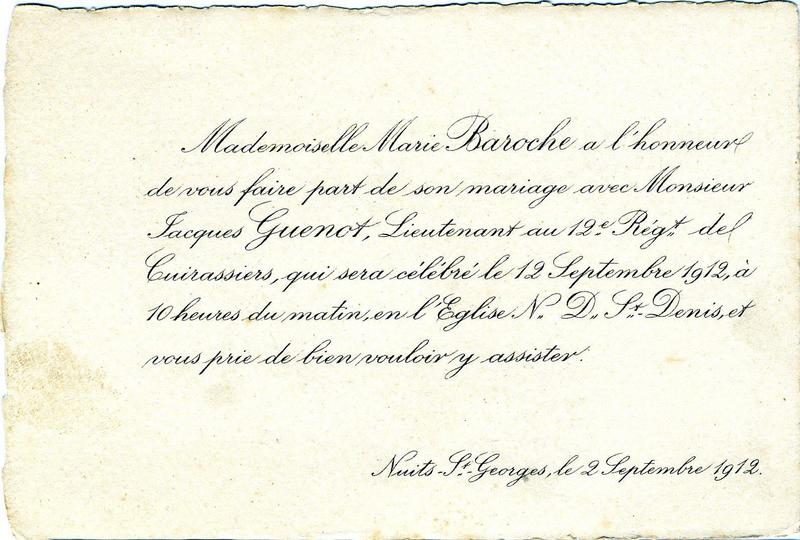 Mademoiselle Marie Baroche a l'honneur
de vous faire part de son mariage avec Monsieur
Jacques Guenot, Lieutenant au 12e Régt de
Cuirassiers, qui sera célébré le 12 Septembre 1912, à
10 heures du matin, en l'Eglise N. D. St-Denis, et
vous prie de bien vouloir y assister.
Nuits-St-Georges, le 2 Septembre 1912.